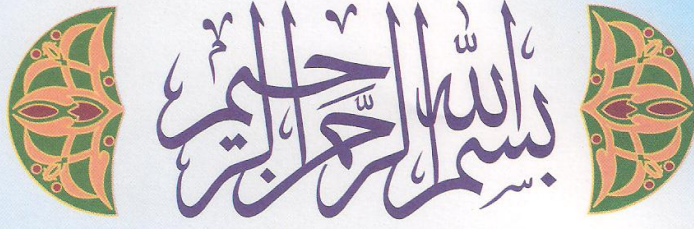 بسم الله الرَّحمن الرحيم